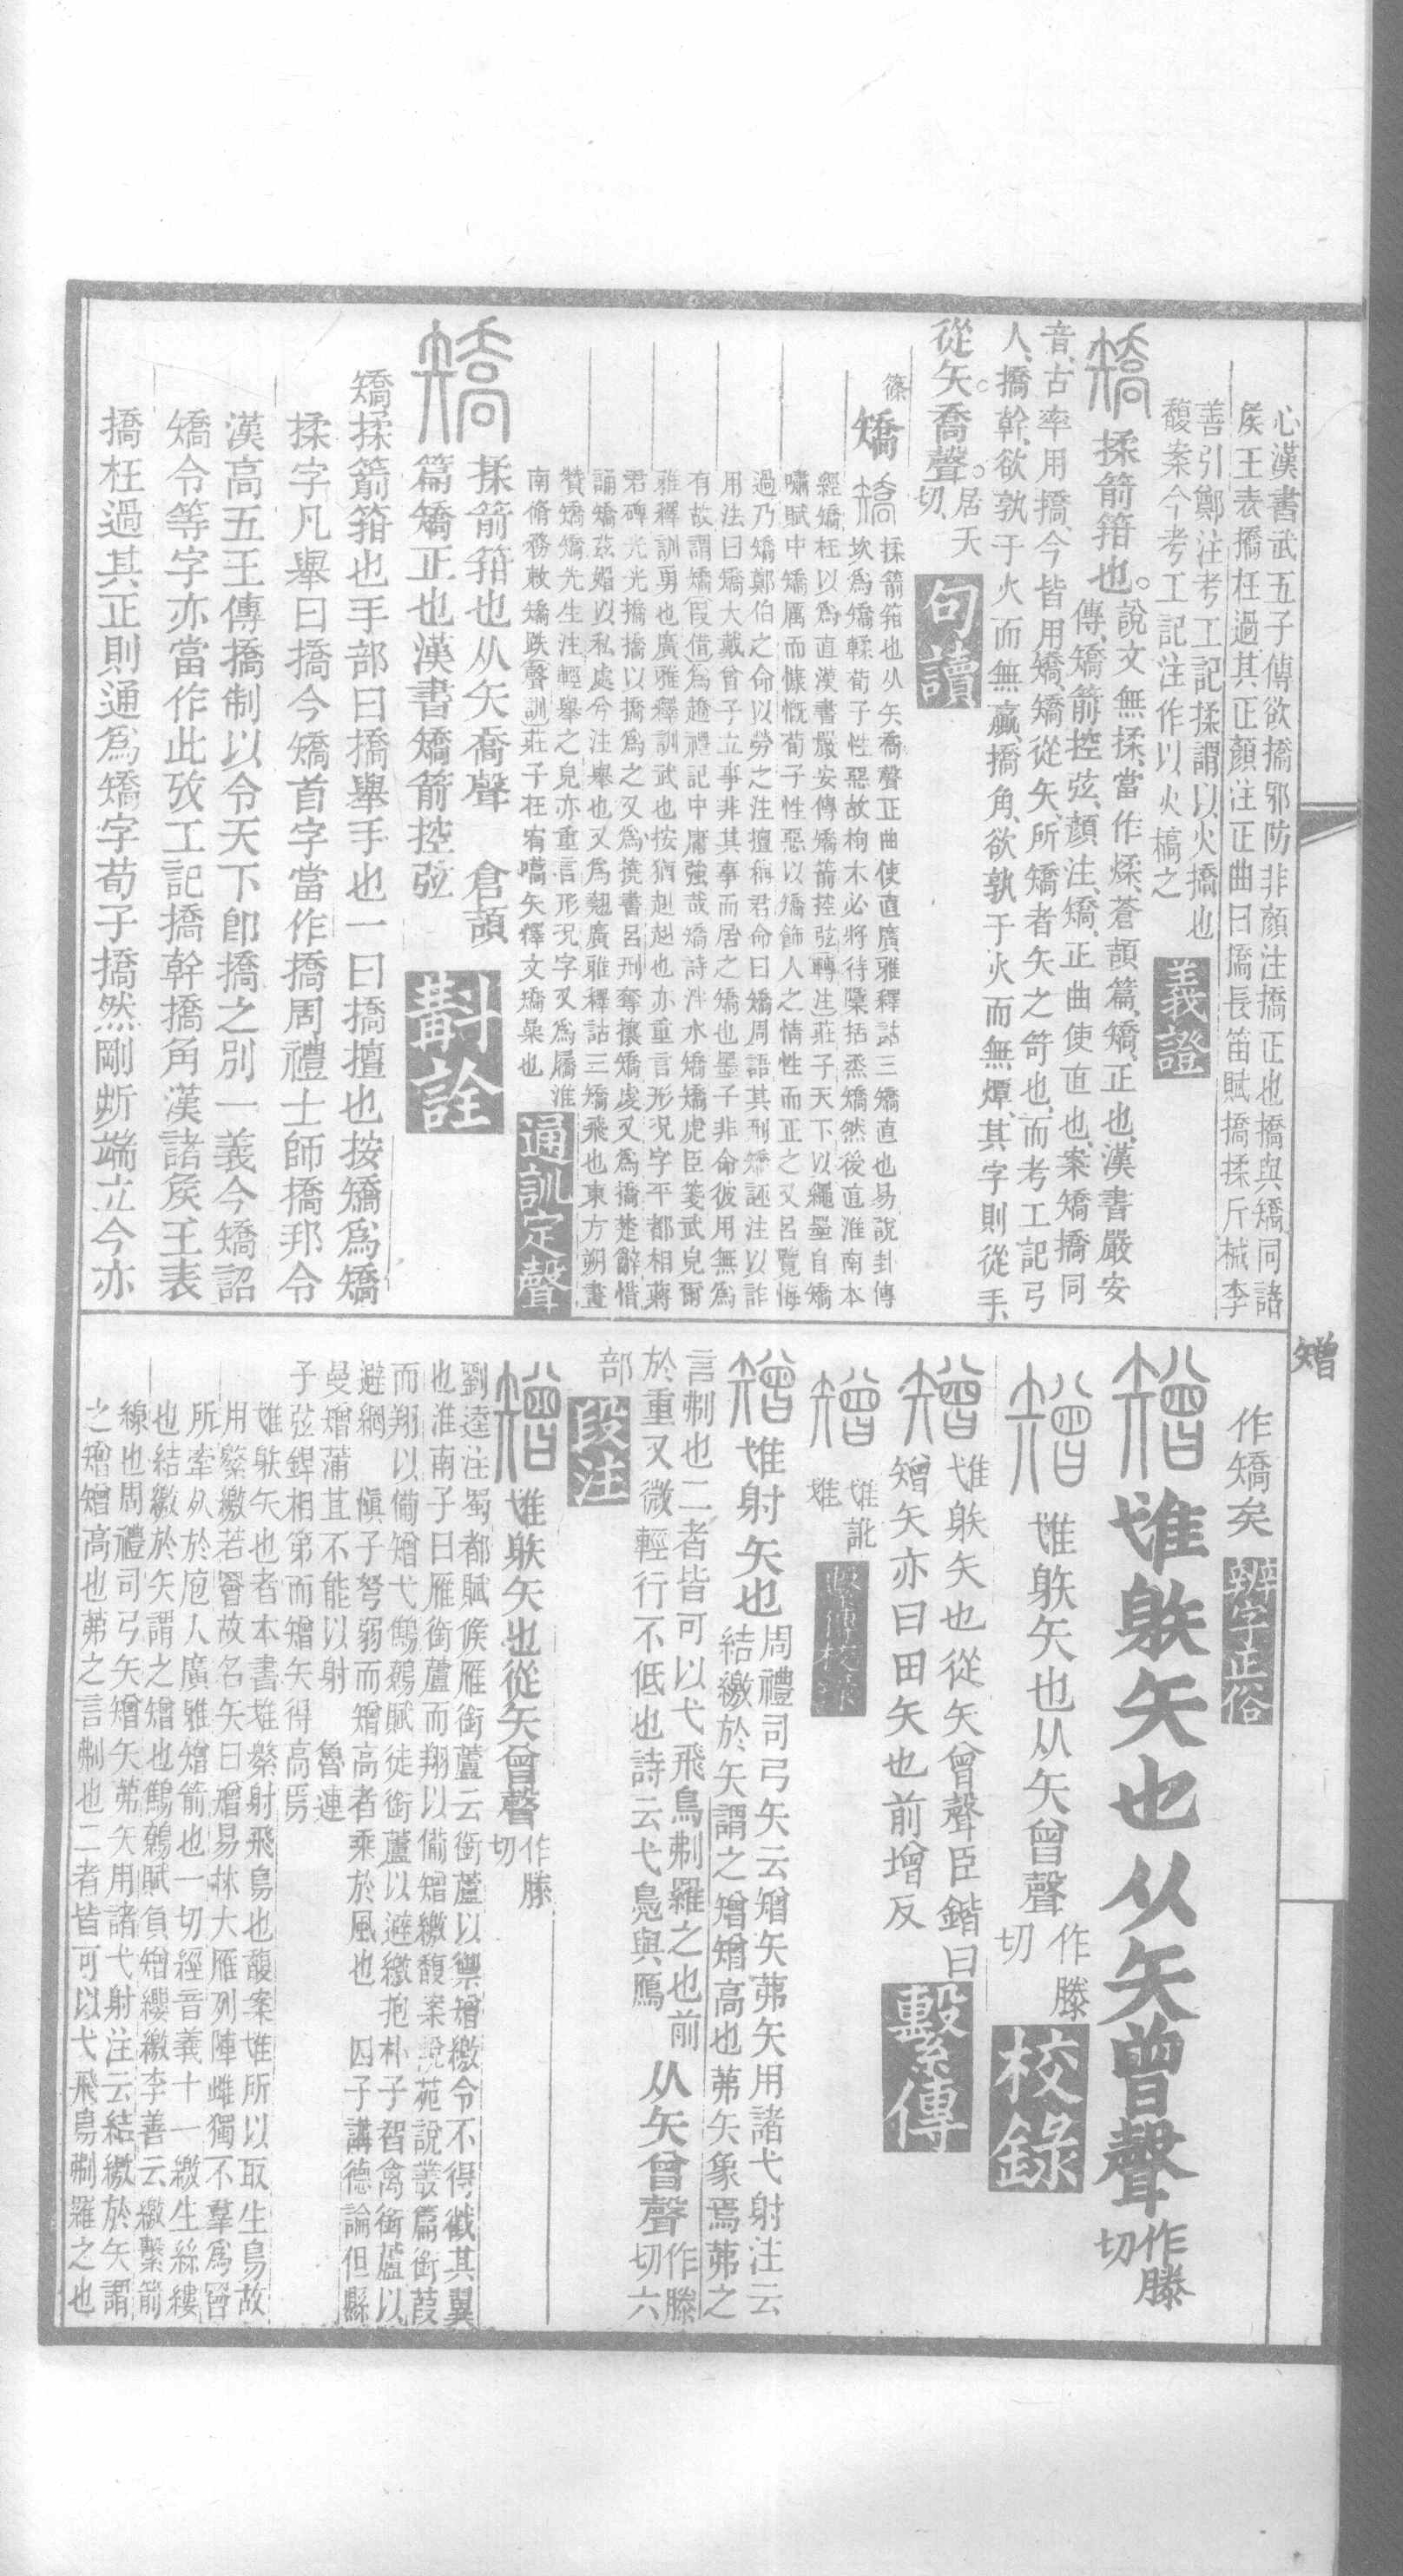 心漢書武五子傳欲撟邪防非顏注撟正也撟與矯同諸
矦王表撟枉過其正顏注正曲曰撟長笛賦撟揉斤械李
善引鄭注考工記揉謂以火撟也
馥案今考工記注作以火槁之
義證
矯揉箭箝也。說文無揉、當作煣、蒼頡篇、矯、正也、漢書嚴安
傳、矯箭控弦、顏注、矯、正曲使直也、案矯撟同
音、古率用撟、今皆用矯、矯從矢、所矯者矢之笴也、而考工記弓
人、撟幹、欲孰于火而無贏、撟角、欲孰于火而無燂、其字則從手、
從矢。喬聲。居夭切、
句讀
篠
矯
矯揉箭箝也从矢喬聲正曲使直廣雅釋詁三矯直也易說卦傳
坎爲矯輮荀子性惡故枸木必將待檃括烝矯然後直淮南本
經矯枉以爲直漢書嚴安傳矯箭控弦轉注莊子天下以繩墨自矯
嘯賦中矯厲而慷慨荀子性惡以矯飾人之情性而正之又呂覽悔
過乃矯鄭伯之命以勞之注擅稱君命曰矯周語其刑矯誣注以詐
用法曰矯大戴曾子立事非其事而居之矯也墨子非命彼用無爲
有故謂矯叚借爲趫禮記中庸強哉矯詩泮水矯矯虎臣箋武皃爾
雅釋訓勇也廣雅釋訓武也按猶赳赳也亦重言形況字平都相蔣
君碑光光撟撟以撟爲之又爲撓書呂刑奪攘矯虔又爲撟楚辭惜
誦矯茲媚以私處兮注舉也又爲翹廣雅釋詁三矯飛也東方朔畫
贊矯矯先生注輕舉之皃亦重言形況字又爲屩淮
南脩務敕矯跌聲訓莊子在宥嚆矢釋文矯桀也
通訓定聲
矯揉箭箝也从矢喬聲 倉頡
篇矯正也漢書矯箭控弦
斠詮
矯揉箭箝也手部曰撟舉手也一曰撟擅也按矯爲矯
揉字凡舉曰撟今矯首字當作撟周禮士師撟邦令
漢高五王傳撟制以令天下卽撟之別一義今矯詔
矯令等字亦當作此攷工記撟幹撟角漢諸矦王表
撟枉過其正則通爲矯字荀子撟然剛斷端立今亦
矰
作矯矣
辨字正俗
矰隿䠶矢也从矢曾聲作滕切
矰隿䠶矢也从矢曾聲作滕切
校錄
矰隿䠶矢也從矢曾聲臣鍇曰
矰矢亦曰田矢也前增反
繫傳
矰隿訛隿
繫傳校錄
矰隿射矢也周禮司弓矢云矰矢茀矢用諸弋射注云
結繳於矢謂之矰矰高也茀矢象焉茀之
言刜也二者皆可以弋飛鳥刜羅之也前
於重又微輕行不低也詩云弋鳧與鴈
从矢曾聲作滕切六
部
段注
矰隿䠶矢也從矢曾聲作滕切
劉逵注蜀都賦候雁銜蘆云銜蘆以禦矰繳令不得截其翼
也淮南子曰雁銜蘆而翔以備矰繳馥案說苑說叢篇銜葭
而翔以備矰弋鷦鷯賦徒銜蘆以避繳抱朴子智禽銜蘆以
避網 愼子弩弱而矰高者乘於風也 四子講德論但縣
曼矰蒲苴不能以射 魯連
子弦銲相第而矰矢得高焉
隿䠶矢也者本書隿繁射飛鳥也馥案隿所以取生鳥故
用繁繳若罾故名矢曰矰易林大雁列陣雌獨不羣爲罾
所牽死於庖人廣雅矰箭也一切經音義十一繳生絲縷
也結繳於矢謂之矰也鷦鷯賦負矰纓繳李善云繳繫箭
線也周禮司弓矢矰矢茀矢用諸弋射注云結繳於矢謂
之矰矰高也茀之言刜也二者皆可以弋飛鳥刜羅之也